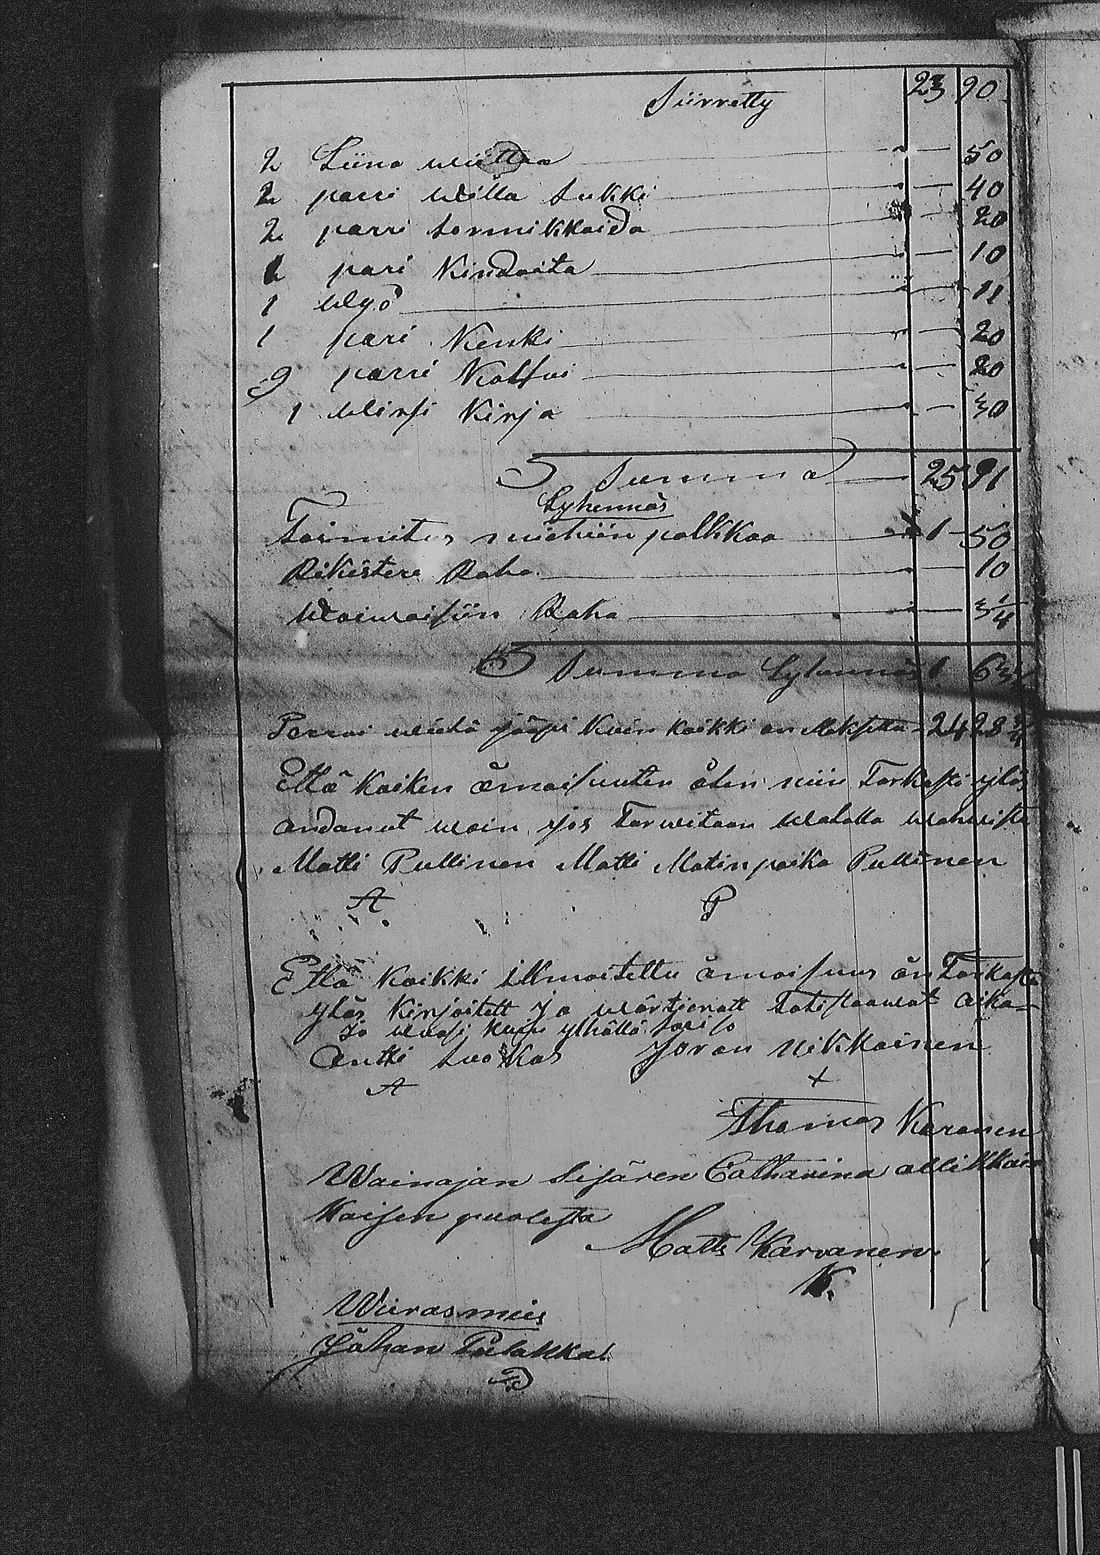 Siirretty 23 90
2 Liina wiittaa " 50
2 parri willa sukki " 40
2 parri sormikkaida " 20
1 pari Kindaita " 10
1 wyö " 11
1 pari Kenki " 20
9 parri Kaltui " 20
1 wirsi Kirja " 30
Summa 25 91
Lyhennös
Toimitus miehiin palkkaa 1 50
Rikisteri Raha " 10
Waiwaisiin Raha " 3 1/4
Summa Lyhennös 1 63
Perroi wielä jääpi kuin kaikki on Maksettu 24 28
Että kaiken omaisuuten olen niin Tarkasti ylös
andanut woin jos Tarwitaan walalla wahwista
Matti Pullinen Matti Matinpoika Pullinen
A P
Että Kaikki illmoitettu omaisuus on Tarkasta
ylös Kirjoitett ja wärtieratt Totistaawat aika
ja wuosi kuin ylhällä
Antti Luokas Joran Nikkainen
A +
Thomas Karonen
Wainajan Sisären Catharina
Kaisen puolesta
Matts Karvanen
K.
Wierasmies
Johan Pulakka